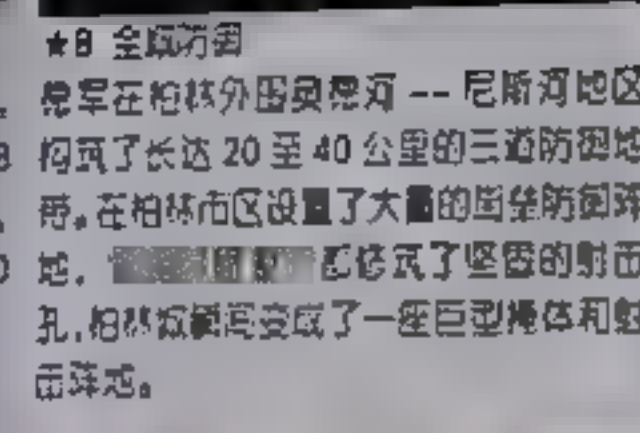 ★8 全城防御
德军在柏林外围奥德河 -- 尼斯河地区
构筑了长达 20 至 40 公里的三道防御地
带。在柏林市区设置了大量的周垒防御阵
地。 都修筑了坚固的射击
孔,柏林城瞬间变成了一座巨型掩体和射
击阵地。